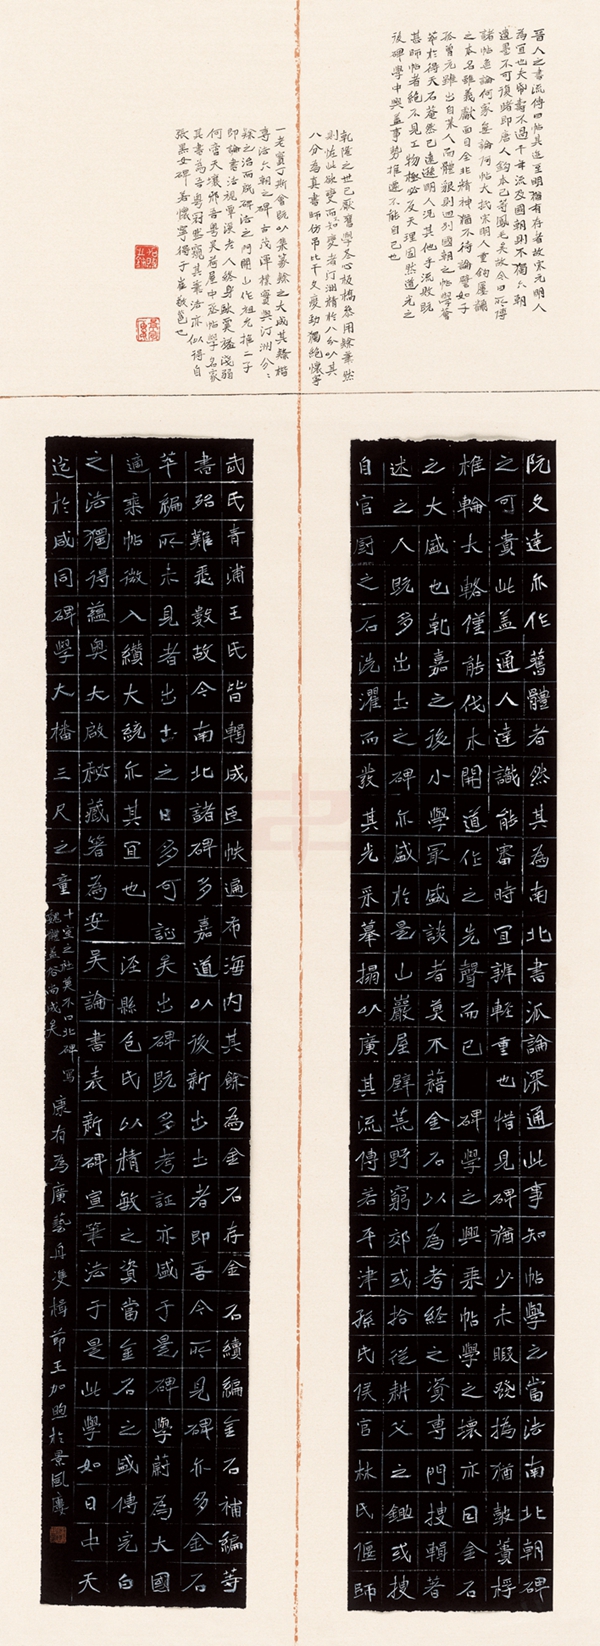 晉人之書流傳曰帖其真至明猶有存者故宋元明人
為宜也夫帝書不過千年流及國朝則不獨六朝
遺墨不可復睹即唐人鈎本已等鳳毛矣故今日所傳
諸帖無論何家無論何帖大抵宋明人重鈎屢翻
之本名雖羲獻面目全非精神猶不待論譬如子
孫曾元雖出自某人而體貌則迥別國朝之帖學薈
萃於得天石庵然已遠遜明人況其他乎流敗既
甚師帖者絕不見工物極必反天理固然道光之
後碑學中興蓋事勢推遷不能自已也
乾隆之世已厭舊學冬心板橋參用隸筆然
則怪此欲變而不知變者汀洲精於八分以其
八分為真書師仿吊比干文瘦勁獨絕懷寧
一老實丁斯會既以集篆隸之大成其隸楷
專法六朝之碑古茂渾樸實與汀洲分分
隸之治而啟碑法之門開山作祖允推二子
即論書法視覃溪老人終身歐虞褊淺弱
何啻天壤邪吾粵吳荷屋中丞帖學名家
其書為吾粵冠然窺其筆法亦似得自
張黑女碑若懷寧得于崔敬邕也
阮文達亦作舊體者然其為南北書派論深通此事知帖學之當法南北朝碑
之可貴此蓋通人達識能審時宜辨輕重也惜見碑猶少未暇發撝猶鼓蕢桴
椎輪大輅僅能伐木開道作之先聲而已 碑學之興乘帖學之壞亦因金石
之大盛也乾嘉之後小學最盛談者莫不藉金石以為考經之資專門搜輯著
述之人既多出土之碑亦盛於是山巖屋壁荒野窮郊或拾從耕父之鋤或搜
自官廚之石洗濯而發其光采摹搨以廣其流傳若平津孫氏侯官林氏偃師
武氏青浦王氏皆輯成巨帙遍布海內其餘為金石存金石續編金石補編等
書殆難悉數故今南北諸碑多嘉道以後新出土者即吾今所見碑亦多金石
萃編所未見者出土之日多可証矣出碑既多考証亦盛于是碑學蔚為大國
適乘帖微入纘大統亦其宜也 涇縣包氏以精敏之資當金石之盛傳完白
之法獨得蘊奧大啟秘藏箸為安吳論書表新碑宣筆法于是此學如日中天
迄於咸同碑學大播三尺之童
十室之社莫不口北碑寫
魏體蓋俗尚成矣
康有為廣藝舟雙楫節王加煦於景風廬